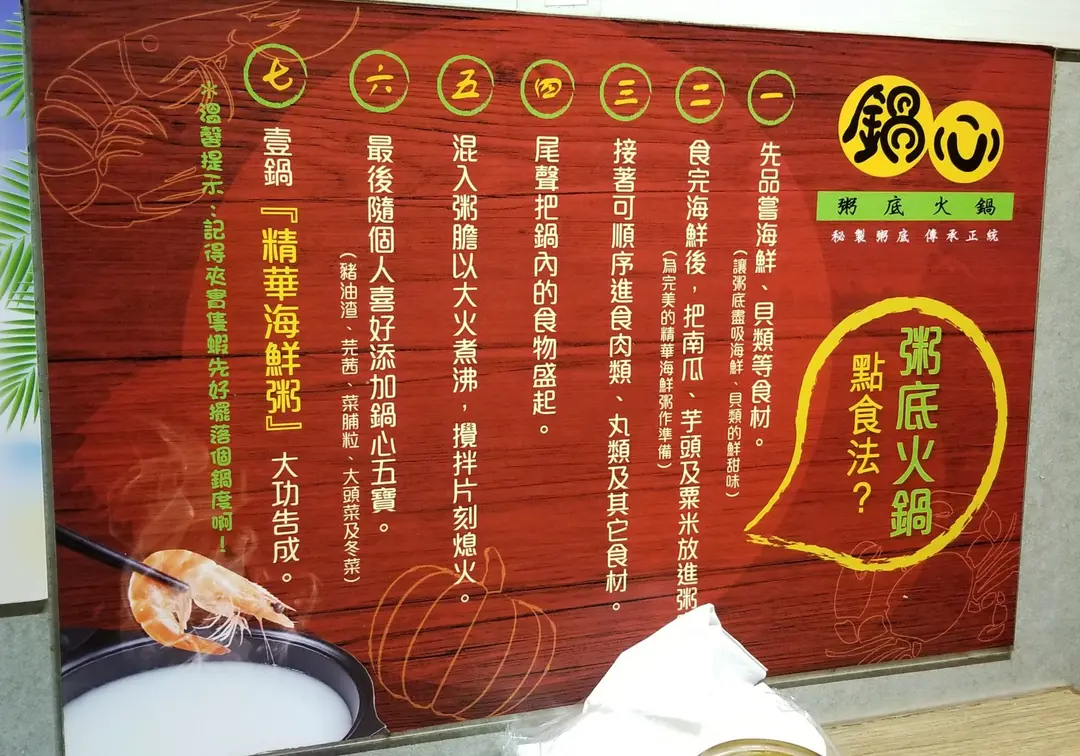 鍋心
粥底火鍋
秘製粥底 傳承正統
粥底火鍋
點食法？
一
先品嘗海鮮、貝類等食材。
（讓粥底盡吸海鮮、貝類的鮮甜味）
二
食完海鮮後，把南瓜、芋頭及粟米放進粥
（為完美的精華海鮮粥作準備）
三
接著可順序進食肉類、丸類及其它食材。
四
尾聲把鍋內的食物盛起。
五
混入粥膽以大火煮沸，攪拌片刻熄火。
六
最後隨個人喜好添加鍋心五寶。
（豬油渣、芫茜、菜脯粒、大頭菜及冬菜）
七
壹鍋『精華海鮮粥』大功告成。
※溫馨提示：記得夾實隻蝦先好擺落個鍋度啊！